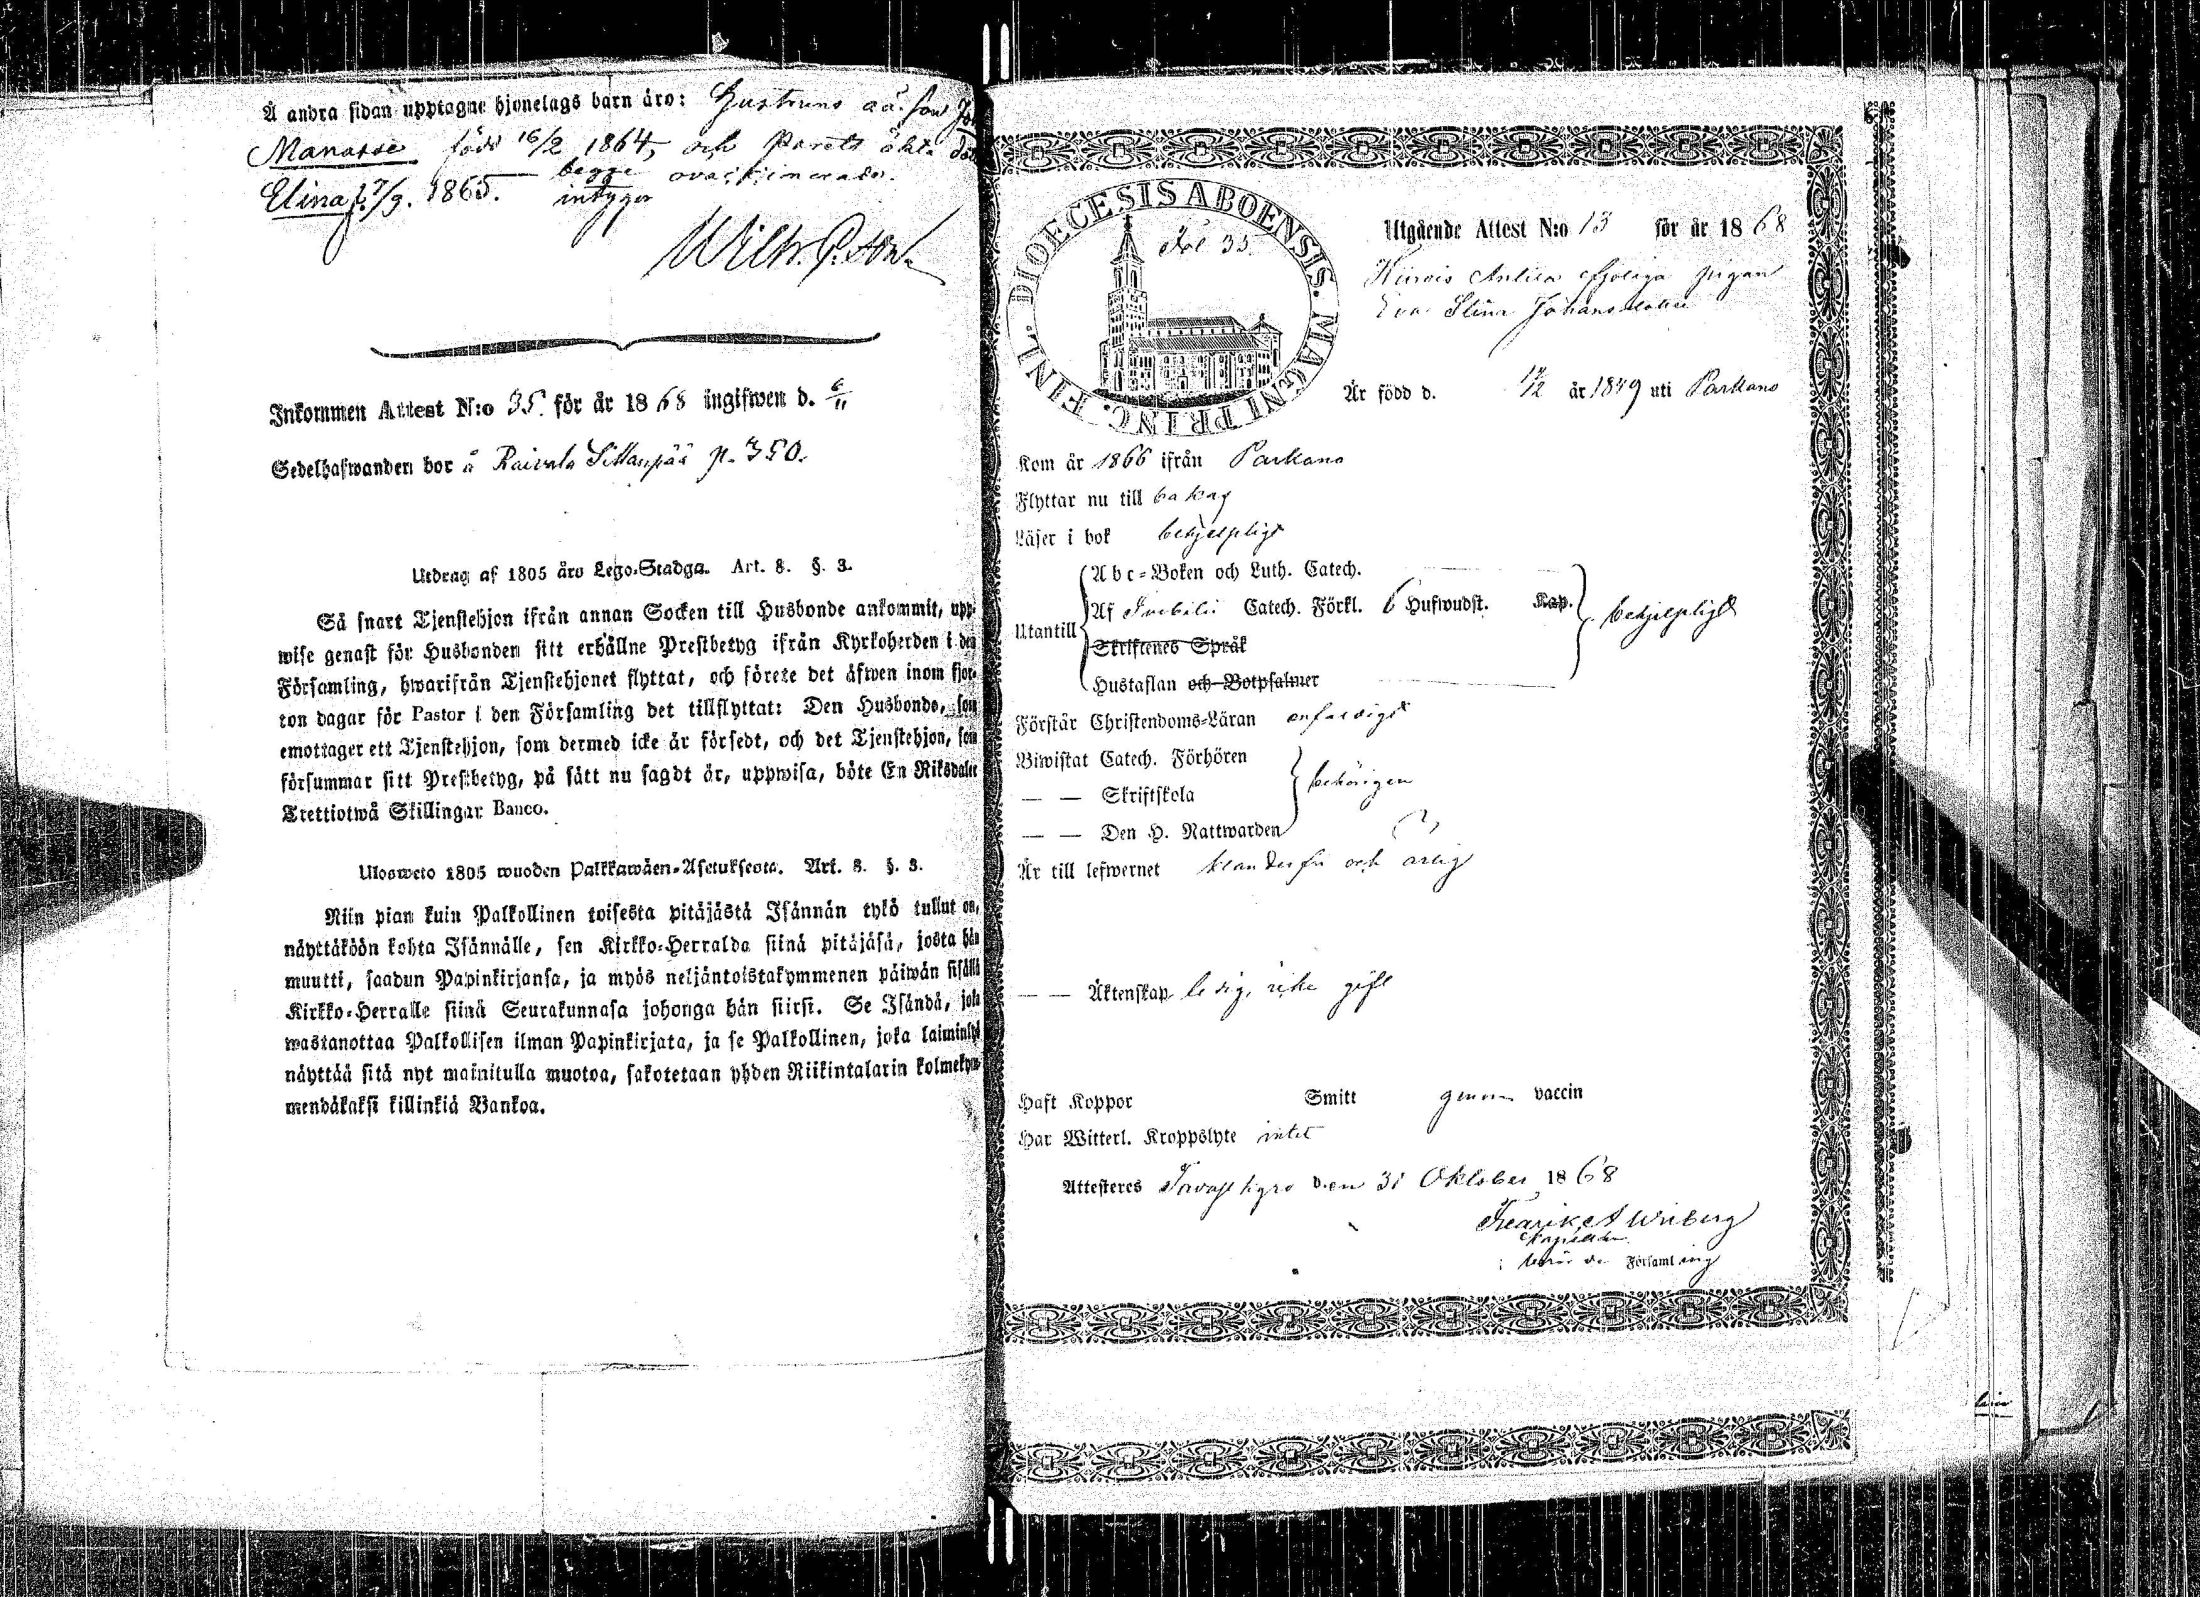 Å andra sidan upptagne hjonelags barn äro: Hustruns oä. son
Manasse född 16/2 1864, och Parets äkta
begge ovaccinerade.
Elina f. 7/9. 1865. intygar
Inkommen Attest N:o 35. för år 18 68 ingifwen d. 6/11
Sedelhafwanden bor å Raivala Sillanpää p. 350.
Utdrag af 1805 års Lego-Stadga. Art. 8. §. 3.
Så snart Tjenstehjon ifrån annan Socken till Husbonde ankommit, upp-
wise genast för Husbonden sitt erhållne Prestbetyg ifrån Kyrkoherden i den
Församling, hwarifrån Tjenstehjonet flyttat, och förete det äfwen inom fjor-
ton dagar för Pastor i den Församling det tillflyttat: Den Husbonde, som
emottager ett Tjenstehjon, som dermed icke är försedt, och det Tjenstehjon, som
försummar sitt Prestbetyg, på sätt nu sagdt är, uppwisa, böte En Riksdaler
Trettiotwå Skillingar Banco.
Ulosweto 1805 wuoden Palkkawäen-Asetuksesta. Art. 8. §. 3.
Niin pian kuin Palkollinen toisesta pitäjästä Isännän tykö tullut on,
näyttäköön kohta Isännälle, sen Kirkko-Herralda siinä pitäjäsä, josta hän
muutti, saadun Papinkirjansa, ja myös neljäntoistakymmenen päiwän sisällä
Kirkko-Herralle siinä Seurakunnasa johonga hän siirsi. Se Isändä, joka
wastanottaa Palkollisen ilman Papinkirjata, ja se Palkollinen, joka laiminlyö
näyttää sitä nyt mainitulla muotoa, sakotetaan yhden Riikintalarin kolmekym-
mendäkaksi killinkiä Bankoa.
DIOECESIS ABOENSIS. MAGNI PRINC. FINL.
Fol 35.
Utgående Attest N:o 13 för år 18 68
pigan
Eva Stina Johansdotter
Är född d. 17/2 år 1849 uti Parkano
Kom år 1866 ifrån Parkano
Flyttar nu till bakaf
Läser i bok behjelpligt
Utantill
Abc-Boken och Luth. Catech.
Af Svebilii Catech. Förkl. 6 Hufwudst. Kap.
behjelpligt
Skriftenes Språk
Hustaflan och Botpsalmer
Förstår Christendoms-Läran enfaldigt
Biwistat Catech. Förhören
— — Skriftskola
behörigen
— — Den H. Nattwarden
Är till lefwernet klanderfri och ärlig
— — Äktenskap ledig, icke gift
Haft Koppor Smitt genom vaccin
Har Witterl. Kroppslyte intet
Attesteres Tavastkyro den 31 Oktober 18 68
Fredrik A Wriberg
Kapellan
Församling